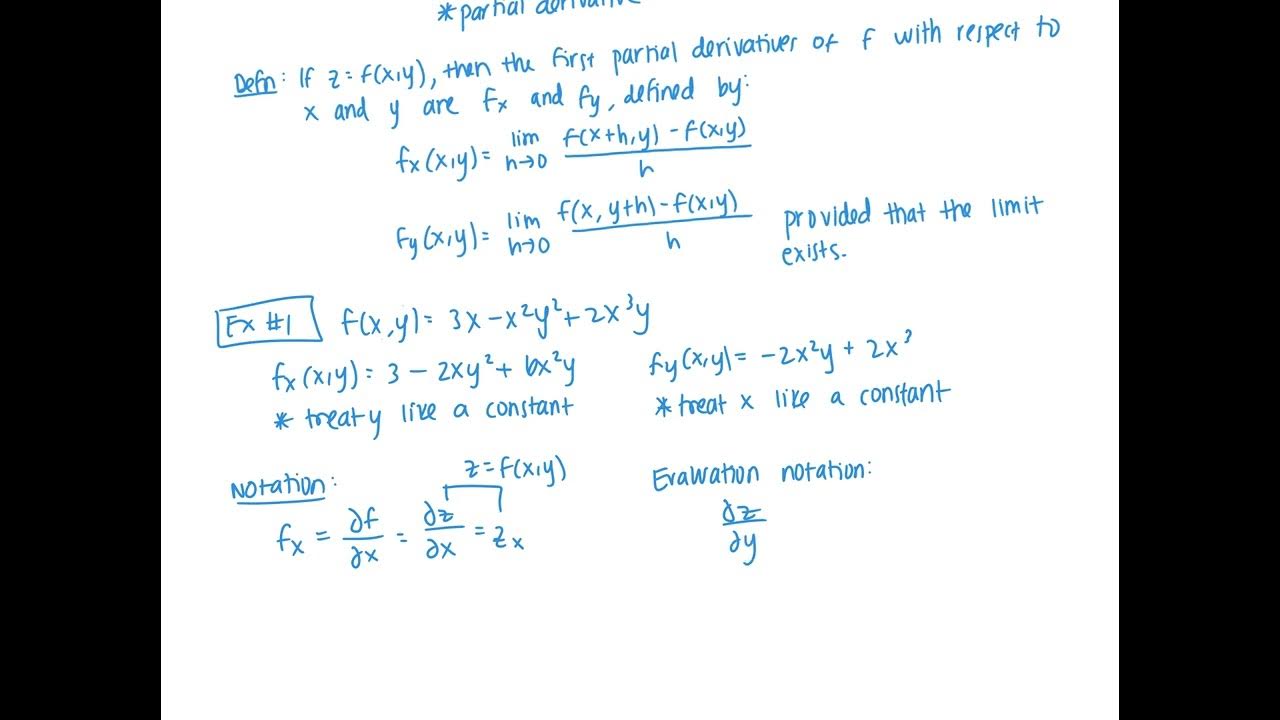 *partial derivative
Defn: If z = f(x,y), then the first partial derivatives of f with respect to
x and y are fx and fy, defined by:
fx(x,y) = lim h→0 f(x+h,y) - f(x,y) / h
fy(x,y) = lim h→0 f(x, y+h) - f(x,y) / h provided that the limit
exists.
Ex #1 f(x,y) = 3x - x²y² + 2x³y
fx(x,y) = 3 - 2xy² + 6x²y fy(x,y) = -2x²y + 2x³
* treat y like a constant *treat x like a constant
Notation: z = f(x,y) Evaluation notation:
fx = ∂f/∂x = ∂z/∂x = zx ∂z/∂y